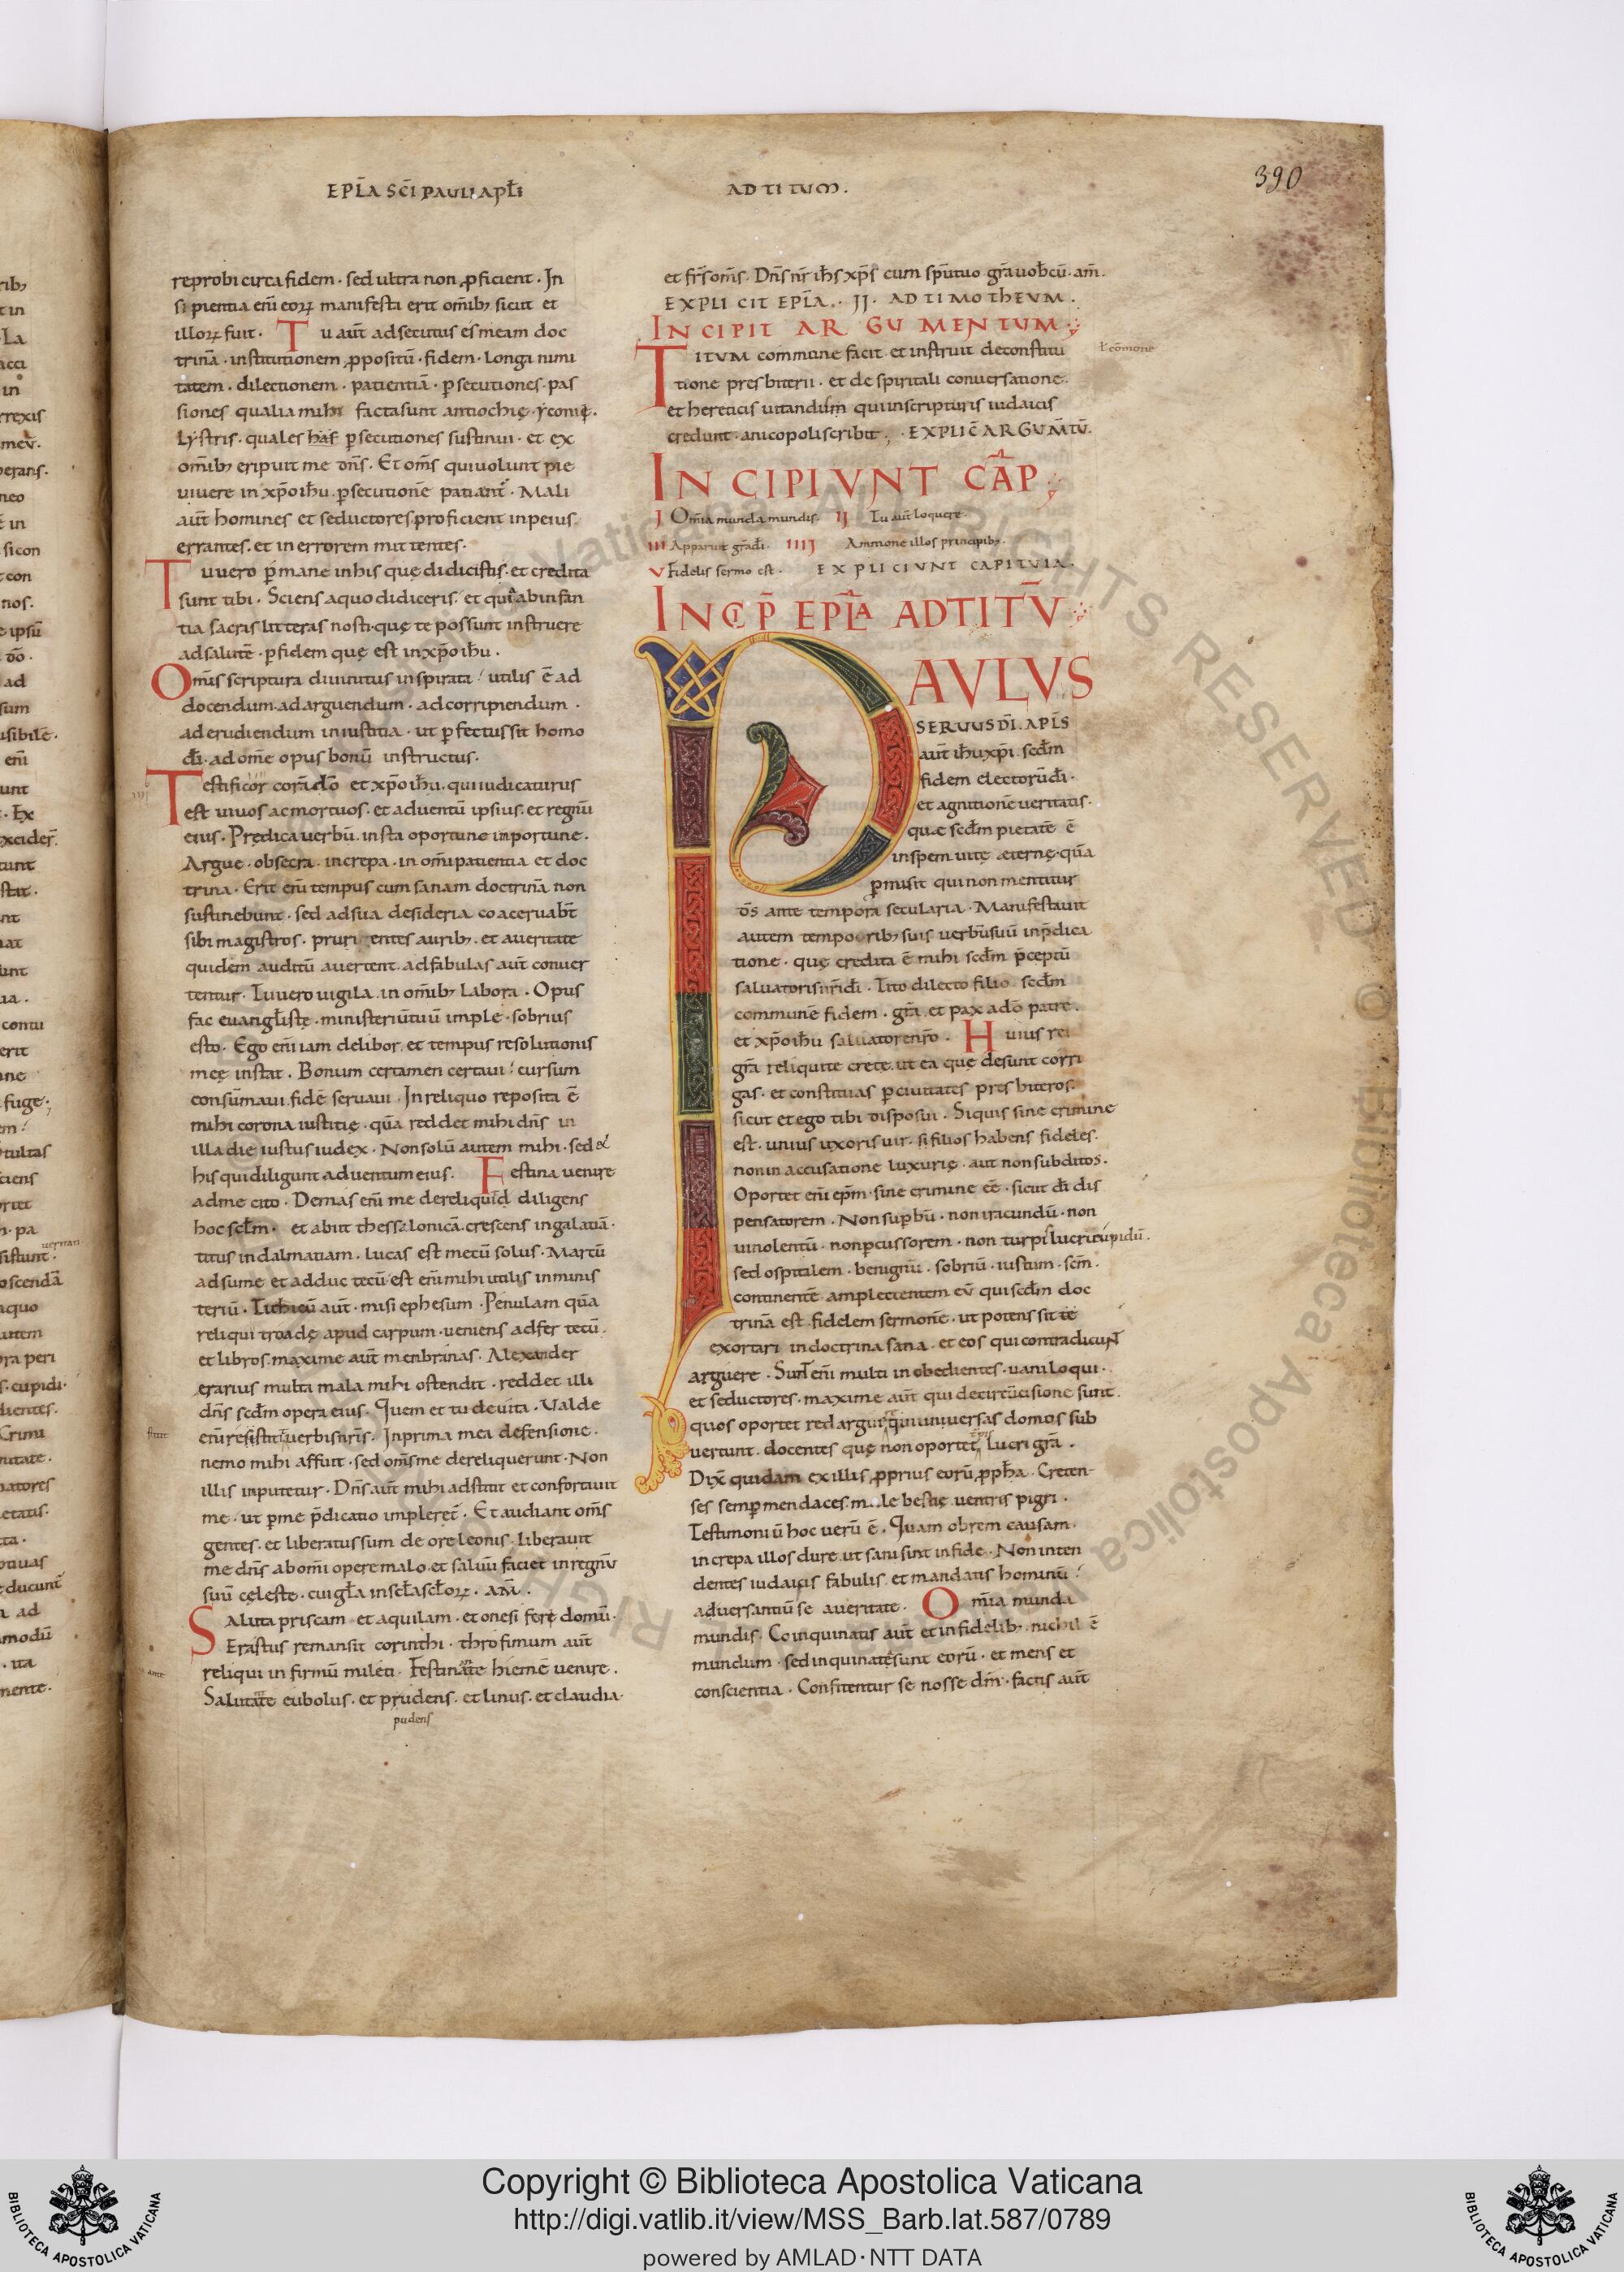 EPL̄A SC̄I PAULI APŁI
AD TITUM.
390
reprobi circa fidem · sed ultra non ꝓficient · In
sipientia eni̅ eoꝝ manifesta erit om̄ib; sicut et
illoꝝ fuit · Tu aut̅ adsecutus es meam doc
trinā · institutionem ꝓpositū · fidem · longa nimi
tatem · dilectionem · patientiā · ꝑsecutiones · pas
siones qualia mihi facta sunt antiochię · yconię ·
Lystris · quales has ꝑsecutiones sustinui · et ex
om̄ib; eripuit me dn̄s · Et om̄s qui uolunt pie
uiuere in xp̄o ihū · ꝑsecutionē patiant᷑ · Mali
aut̅ homines et seductores proficient in peius
errantes · et in errorem mittentes ·
Tu uero ꝑmane in his quę didicistis · et credita
sunt tibi · Sciens a quo didiceris · et quia ab infan
tia sacras litteras nosti · quę te possunt instruere
ad salutē · ꝑ fidem quę est in xp̄o ihū ·
Om̄is scriptura diuinitus inspirata · utilis ē ad
docendum · ad arguendum · ad corripiendum ·
ad erudiendum in iustitia · ut ꝑfectus sit homo
dī · ad om̄e opus bonū instructus ·
Testificor corā dō et xp̄o ihū · qui iudicaturus
est uiuos ac mortuos · et aduentū ipsius · et regnū
eius · Prędica uerbū · insta oportune inportune ·
Argue · obsecra · increpa · in om̄i patientia et doc
trina · Erit eni̅ tempus cum sanam doctrinā non
sustinebunt · sed ad sua desideria coaceruab̄t
sibi magistros · prurientes aurib; · et a ueritate
quidem auditū auertent · ad fabulas aut̅ conuer
tentur · Tu uero uigila · in om̄ib; labora · Opus
fac euangłistę · ministeriū tuū imple · sobrius
esto · Ego eni̅ iam delibor · et tempus resolutionis
meę instat · Bonum certamen certaui · cursum
consūmaui · fidē seruaui · In reliquo reposita ē
mihi corona iustitię · quā reddet mihi dn̄s in
illa die iustus iudex · Non solū autem mihi · sed &
his qui diligunt aduentum eius · Festina uenire
ad me cito · Demas eni̅ me dereliquid diligens
hoc scłm · et abiit thessalonicā · crescens in galatiā ·
titus in dalmatiam · lucas est mecū solus · Marcū
adsume et adduc tecū · est eni̅ mihi utilis in minis
teriū · Tichicū aut̅ · misi ephesum · Penulam quā
reliqui troadę apud carpum · ueniens adfer tecū ·
et libros · maxime aut̅ menbranas · Alexander
erarius multa mala mihi ostendit · reddet illi
dn̄s scd̄m opera eius · Quem et tu deuita · Valde
eni̅ resistit uerbis nr̄is · In prima mea defensione ·
nemo mihi affuit · sed om̄s me dereliquerunt · Non
illis inputetur · Dn̄s aut̅ mihi adstitit et confortauit
me · ut ꝑ me p̄dicatio impleret᷑ · Et audiant om̄s
gentes · et liberatus sum de ore leonis · liberauit
me dn̄s ab om̄i opere malo · et saluū faciet in regnū
suū cęleste · cui gła in scła scłoꝝ · AM̄ ·
Saluta priscam · et aquilam · et onesi fere domū ·
Erastus remansit corinthi · throfimum aut̅
reliqui infirmū mileti · Festinate hiemē uenire ·
Salutate eubolus · et prudens · et linus · et claudia ·
pudens
et fr̄s om̄s · Dn̄s nr̄ ih̄s xp̄s cum sp̄u tuo · grā uobcū · am̄ ·
EXPLICIT EPL̄A · II · AD TIMOTHEVM ·
INCIPIT ARGUMENTUM
TITUM commune facit · et instruit de constitu
tione presbiterii · et de spiritali conuersatione ·
et hereticis uitandum qui in scripturis iudaicis
credunt · a nicopoli scribit · EXPLIC̄ ARGUM̄TŪ ·
INCIPIVNT CAP̄
I Om̄ia munda mundis · II Tu aut̅ loquere ·
III Apparuit grā dī · IIII Ammone illos principib; ·
V Fidelis sermo est · EXPLICIVNT CAPITVLA ·
INCIP̄ EPL̄A AD TITV̄
PAVLVS
SERUUS DĪ · APL̄S
aut̅ ihū xp̄i · scd̄m
fidem electorū dī ·
et agnitionē ueritatis ·
quæ scd̄m pietatē ē
in spem uitę æternę · quā
ꝓmisit qui non mentitur
d̄s ante tempora secularia · Manifestauit
autem temporib; suis uerbū suū in p̄dica
tione · quę credita ē mihi scd̄m p̄ceptū
saluatoris nr̄i dī · Tito dilecto filio scd̄m
communē fidem · grā · et pax a dō patre ·
et xp̄o ihū saluatore nr̄o · Huius rei
grā reliqui te crete · ut ea quę desunt corri
gas · et constituas ꝑ ciuitates presbiteros ·
sicut et ego tibi disposui · Siquis sine crimine
est · unius uxoris uir · si filios habens fideles ·
non in accusatione luxurię · aut non subditos ·
Oportet eni̅ ep̄m · sine crimine eē · sicut dī dis
pensatorem · Non suꝑbū · non iracundū · non
uinolentū · non ꝑcussorem · non turpi lucri cupidū ·
sed ospitalem · benignū · sobriū · iustum · sc̄m ·
continentē · amplectentem eū qui scd̄m doc
trinā est · fidelem sermonē · ut potens sit te
exortari in doctrina sana · et eos qui contradicunt
arguere · Sunt eni̅ multi inobedientes · uaniloqui ·
et seductores · maxime aut̅ qui de circūcisione sunt ·
quos oportet redargui · qui uniuersas domos sub
uertunt · docentes quę non oportet lucri grā ·
Dix̄ quidam ex illis ꝓprius eorū ꝓph̄a · Creten
ses semꝑ mendaces · male bestię uentris pigri ·
Testimoniū hoc uerū ē · Quam obrem causam ·
increpa illos dure · ut sani sint in fide · Non inten
dentes iudaicis fabulis · et mandatis hominū ·
aduersantiū se a ueritate · Om̄ia munda
mundis · Coinquinatis aut̅ et infidelib; nichil ē
mundum · sed inquinatę sunt eorū · et mens et
conscientia · Confitentur se nosse dm̄ · factis aut̅
Copyright © Biblioteca Apostolica Vaticana
http://digi.vatlib.it/view/MSS_Barb.lat.587/0789
powered by AMLAD·NTT DATA
BIBLIOTECA APOSTOLICA VATICANA
BIBLIOTECA APOSTOLICA VATICANA